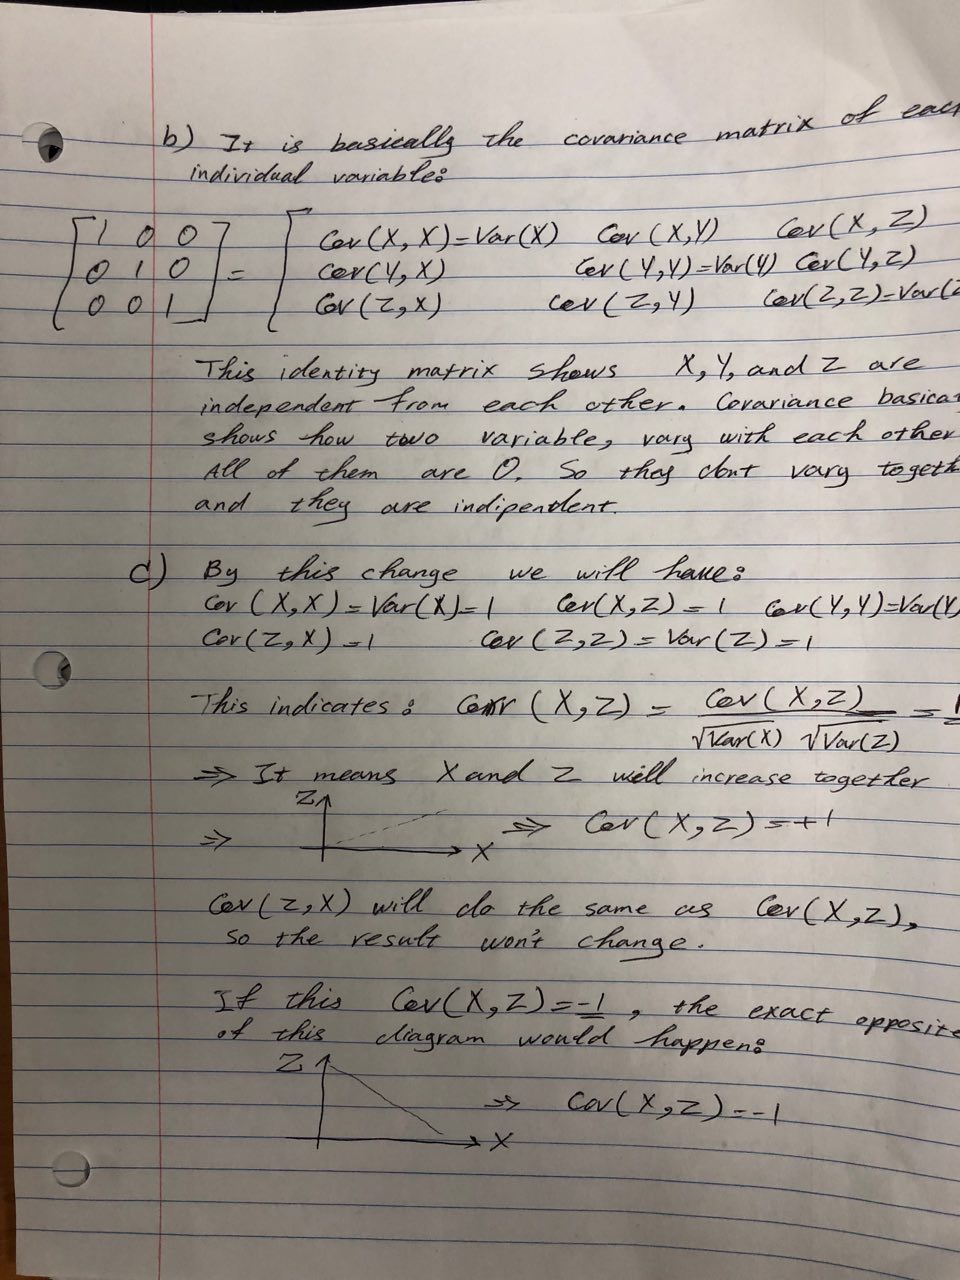 b) It is basically the covariance matrix of each
individual variable:
[1 0 0
0 1 0
0 0 1] = [Cov(X, X)=Var(X) Cov(X,Y) Cov(X, Z)
Cov(Y,X) Cov(Y,Y)=Var(Y) Cov(Y,Z)
Cov(Z,X) Cov(Z,Y) Cov(Z,Z)=Var(Z
This identity matrix shows X, Y, and Z are
independent from each other. Covariance basica
shows how two variables vary with each other
All of them are 0. So they dont vary togeth
and they are indipendent.
c) By this change we will have:
Cov (X,X)=Var(X)=1 Cov(X,Z)=1 Cov(Y,Y)=Var(Y)
Cov(Z,X)=1 Cov(Z,Z)=Var(Z)=1
This indicates: Corr (X,Z) = Cov(X,Z) / √Var(X) √Var(Z) = 1
⇒ It means X and Z will increase together
Z
⇒ X ⇒ Cov(X,Z)=+1
Cov(Z,X) will do the same as Cov(X,Z),
so the result won't change.
If this Cov(X,Z)=-1, the exact opposite
of this diagram would happen:
Z
X ⇒ Cov(X,Z)=-1